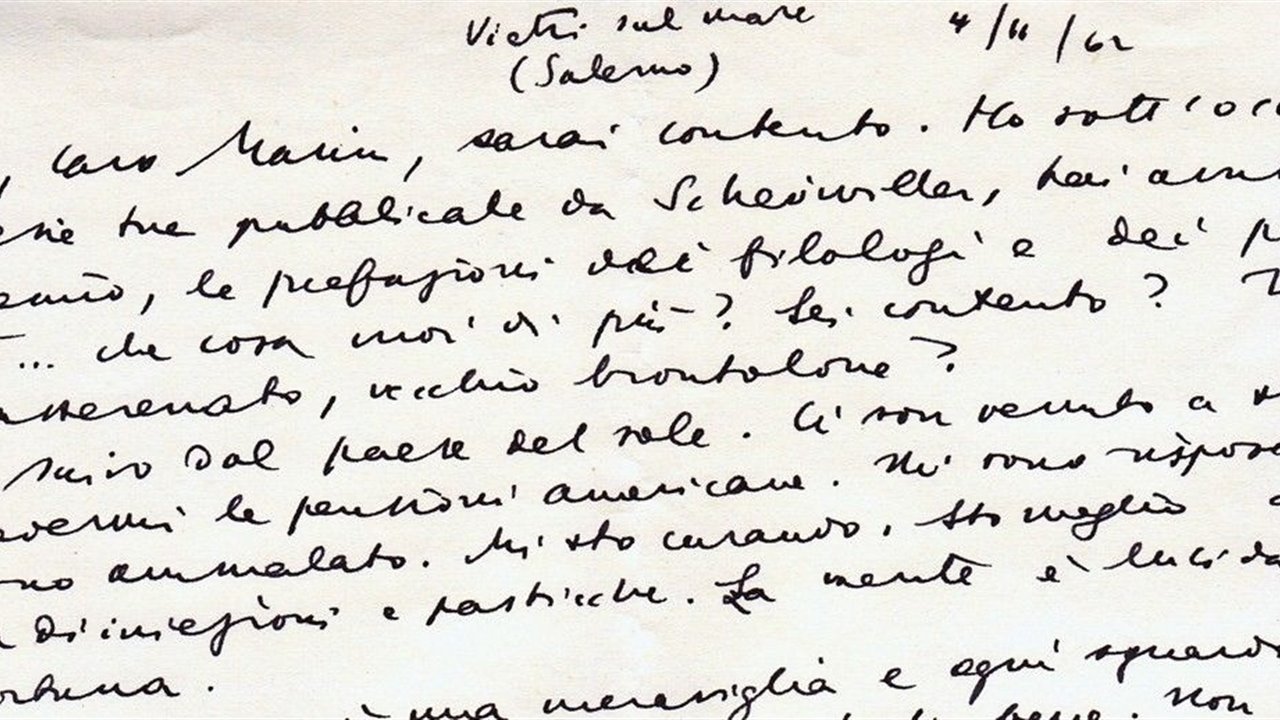 Vietri sul mare 4/11/62
(Salerno)
, caro Marin, sarai contento. Ho sott'oc
esie tue pubblicate da Scheiwiller, hai avu
emio, le prefazioni dei filologi e dei p
... che cosa vuoi di più? Sei contento? T
asserenato, vecchio brontolone?
scrivo dal paese del sole. Ci son venuto a
le pensioni americane. Mi sono
no ammalato. Mi sto curando. Sto meglio
di iniezioni e pasticche. La mente è lucida
ortuna.
è una meraviglia e ogni sguardo
bene. Non